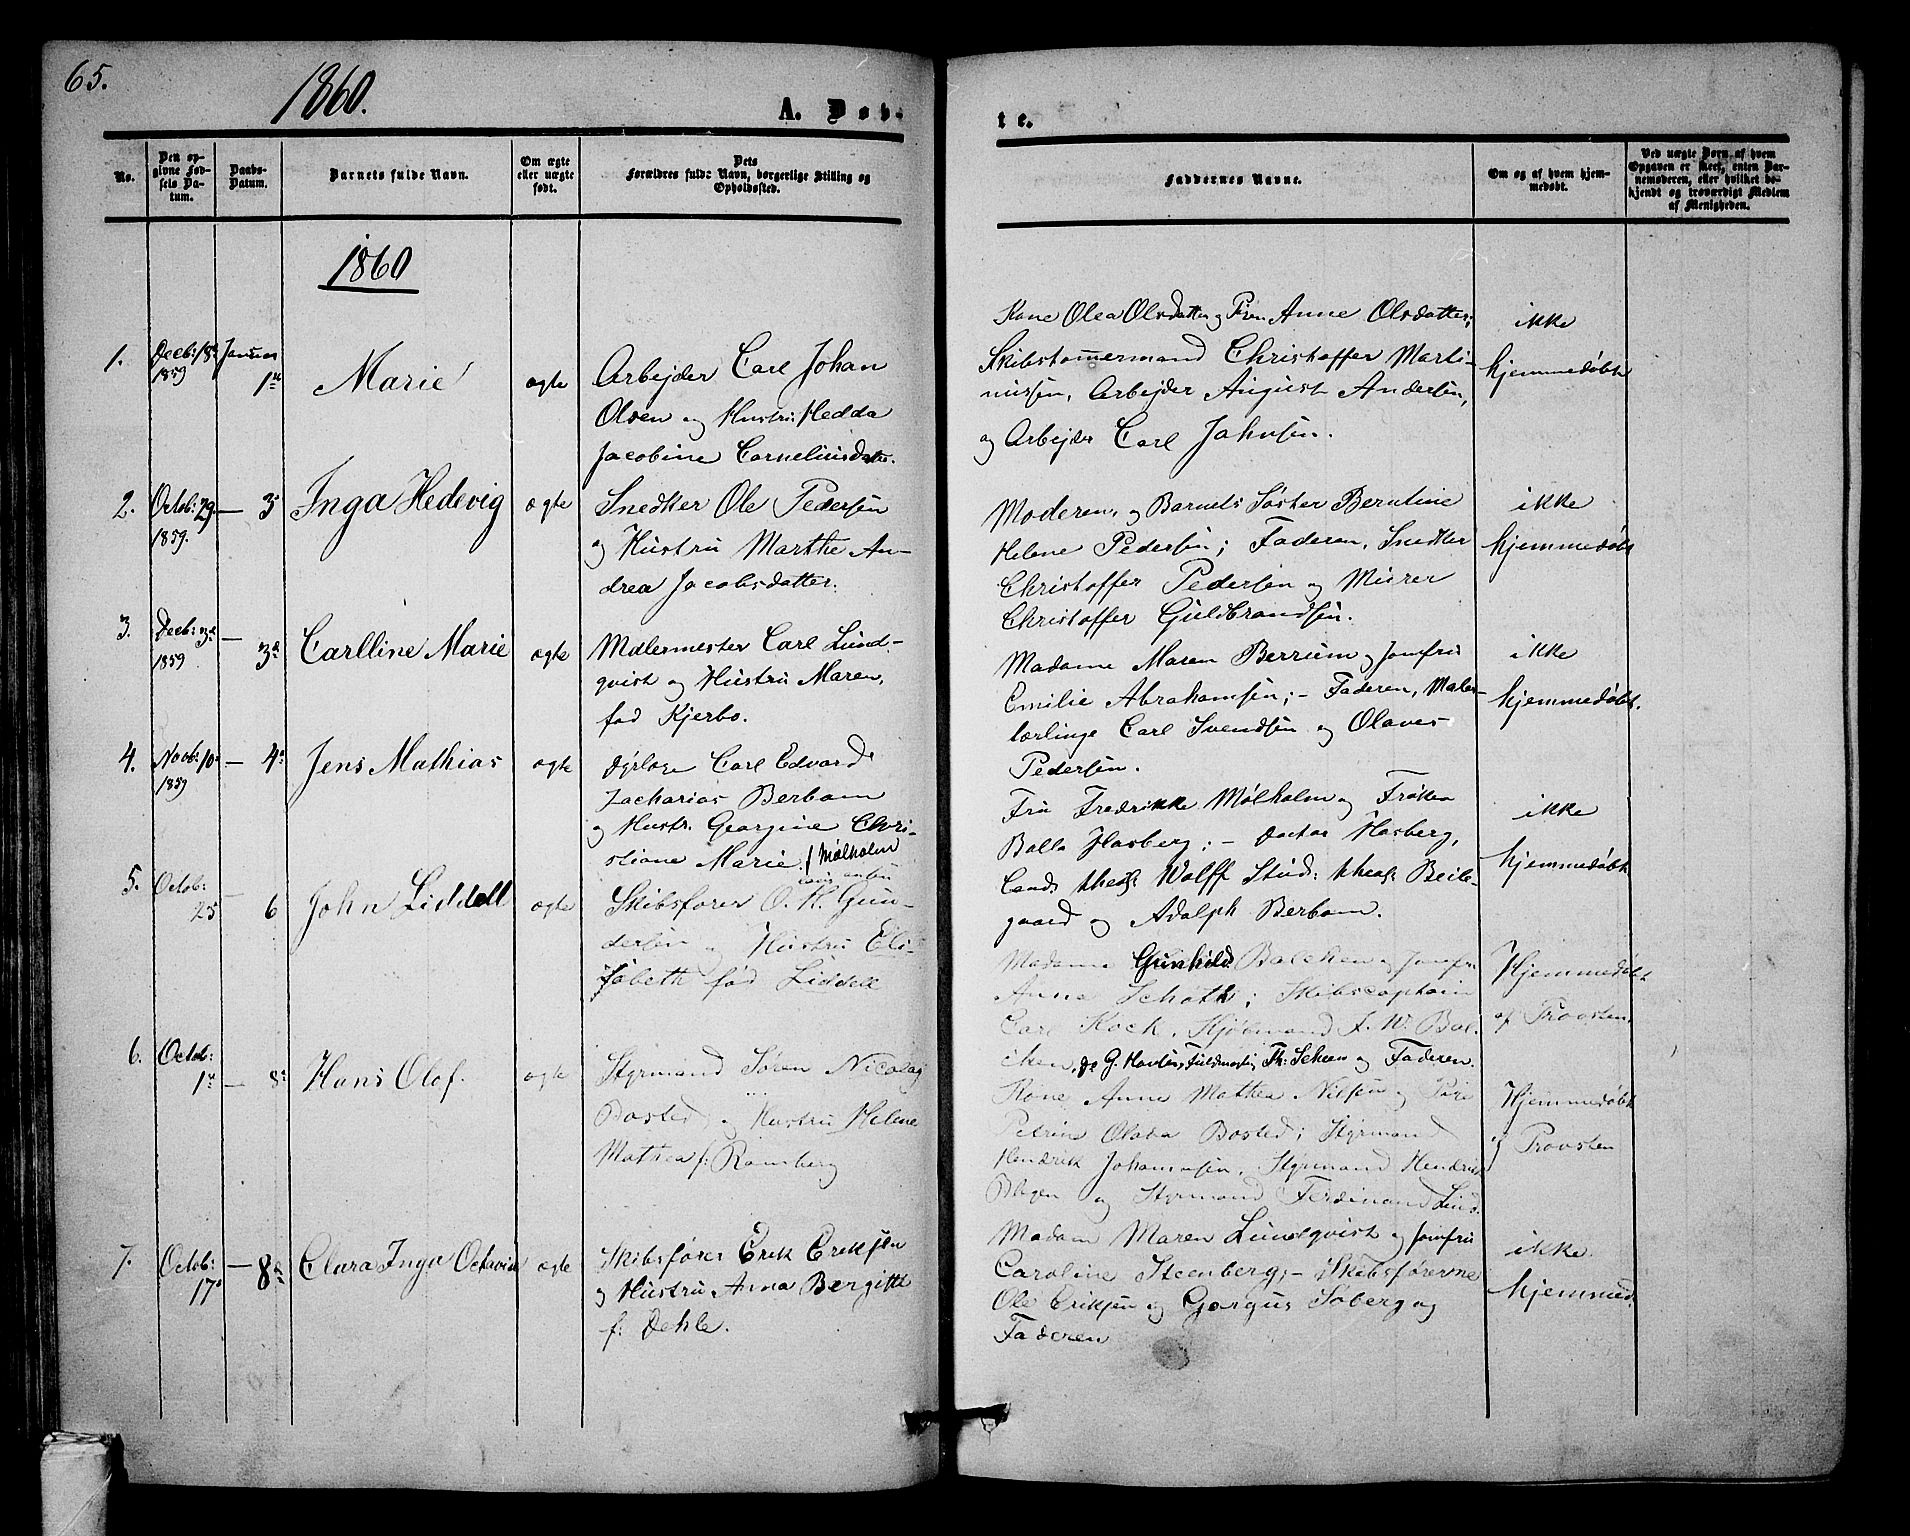 65.
1860.
A. Døb-
te.
No.
Den op-
givne Fød-
sels Da-
tum.
Daabs-
Datum.
Barnets fulde Navn.
Om ægte
eller uægte
født.
Dets
Forældres fulde Navn, borgerlige Stilling og
Opholdssted.
Faddernes Navne.
Om og af hvem hjem-
medøbt.
Ved uægte Børn, af hvem
Opgaven er skeet, enten Bar-
nemoderen, eller hvilket be-
kjendt og troværdigt Medlem
af Menigheden.
1860
1.
Decb: 18de
1859
Januar
1ste
Marie
ægte
Arbejder Carl Johan
Olsen og Hustru Hedda
Jacobine Corneliusdatter.
Kone Olea Olsdatter og Anne Olsdatter;
Skibstømmermand Christoffer Marti-
niussen, Arbejder August Andersen,
og Arbejder Carl Johnsen.
ikke
hjemmedøbt
2.
Octob: 29.
1859.
— 3
Inga Hedevig
ægte
Snedker Ole Pedersen
og Hustru Marthe An-
drea Jacobsdatter.
Moderen, og Barnets Søster Berntine
Helene Pedersen; Faderen, Snedker
Christoffer Pedersen og Murer
Christoffer Guldbrandsen.
ikke
hjemmedøbt
3.
Decb: 3die
1859
— 3die
Carlline Marie
ægte
Malermester Carl Lund-
qvist og Hustru Maren,
fød Kjerbo.
Madame Maren Berrum og Jomfru
Emilie Abrahamsen; – Faderen, Maler-
lærlinge Carl Svendsen og Olaves
Pedersen.
ikke
hjemmedøbt.
4.
Novb: 10
1859
— 4
Jens Mathias
ægte
Dyrlæge Carl Edvard
Zacharias Berbom
og Hustr. Georgine Chri-
stiane Marie f Mølholm
Fru Fredrikke Mølholm og Frøken
Balle Hasberg; – Doctor Hasberg,
Cand: theol: Wolff Stud: theol: Beile-
gaard og Adolph Berbom.
ikke
hjemmedøbt
5.
Octob:
25
— 6
John Liddell
ægte
Skibsfører O. H. Gun-
dersen og Hustru Eli-
sabeth fød Liddell
Madame Gunhild Balchen og Jomfru
Anna Schøth; Skibscaptein
Carl Kock, Kjøbmand F. W. Bal-
chen, G. Fuldmægtig Th: Scheen og Faderen.
Hjemmedøbt
af Provsten.
6.
Octob:
1ste
— 8
Hans Olof.
ægte
Styrmand Søren Nicolay
Bosted og Hustru Helene
Mathea f: Ramberg
Kone Anne Mathea Nilsen og Pige
Petrine Olava Bosted; Styrmand
Hendrik Johannesen, Styrmand Hendrik
og Styrmand Ferdinand Lind.
Hjemmedøbt
af Provsten
7.
Octob:
17
— 8de
Clara Inga Octavia
ægte
Skibsfører Erik Eriksen
og Hustru Anna Bergitte
f: Dehle.
Madam Maren Lundqvist og Jomfru
Caroline Steenberg; – Skibsførerne
Ole Eriksen og Gorgus Soberg og
Faderen
ikke
hjemmed.